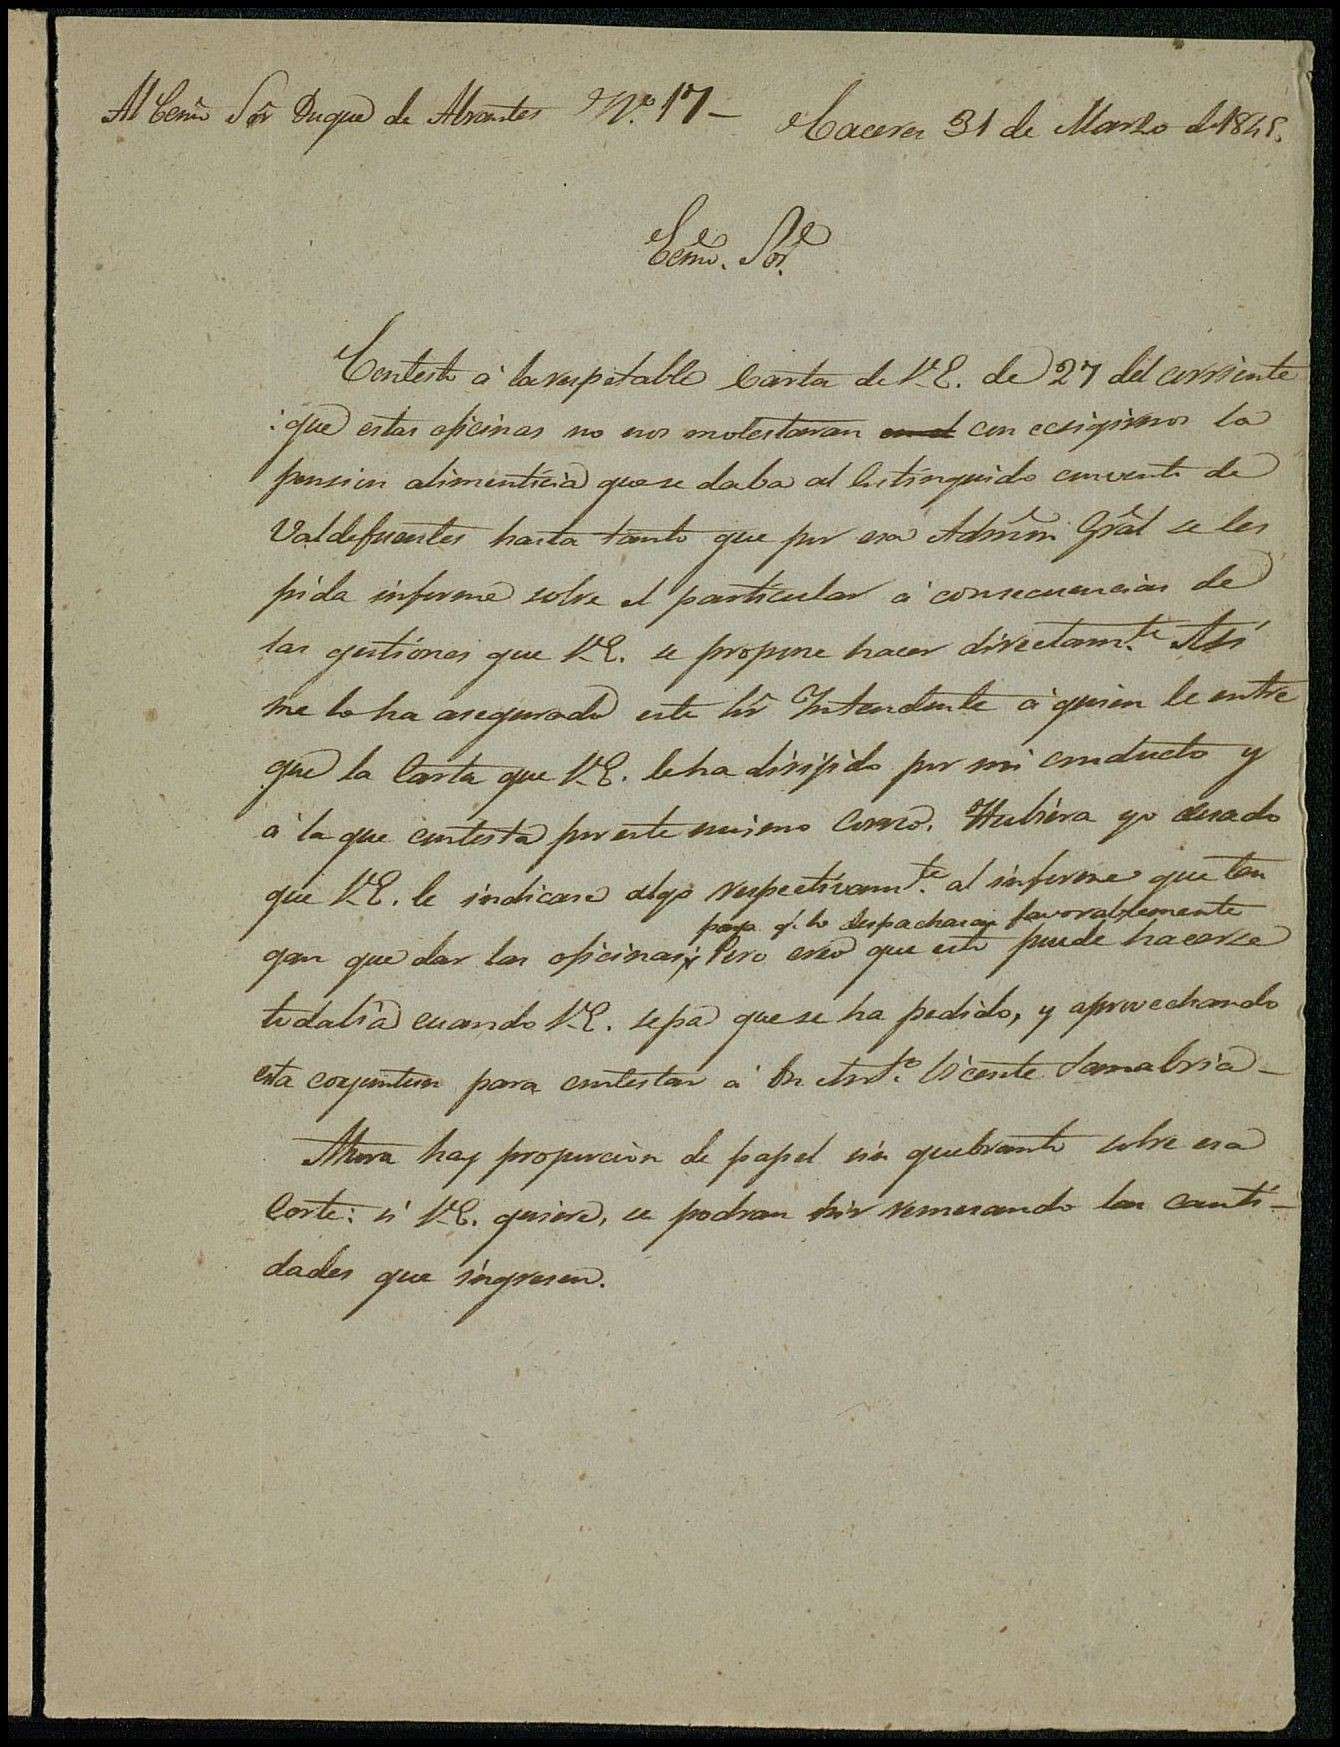 Al Ecmo Sor Duque de Abrantes N.o 17 - Caceres 31 de Marzo de 1845.
Ecmo. Sor.
Contesto á la respetable Carta de V.E. de 27 del corriente
: que estas oficinas no nos molestaran en el con ecsigirnos la
pension alimenticia que se daba al Estinguido convento de
Valdefuentes hasta tanto que por esa Admon Gral se les
pida informe sobre el particular á consecuencias de
las gestiones que V.E. se propone hacer directamte. Asi
me lo ha asegurado este Sr Intendente á quien le entre
gue la Carta que V.E. le ha dirijido por mi conducto y
á la que contesta por este mismo Correo. Hubiera yo deseado
que V.E. le indicase algo respectivamte. al informe que ten
para q. lo despacharan favorablemente
gan que dar las oficinas; Pero creo que esto puede hacerse
todabia cuando V.E. sepa que se ha pedido, y aprovechando
esta coyuntura para contestar á Dn Anto. Vicente Sanabria -
Ahora hay proporcion de papel sin quebranto sobre esa
Corte: si V.E. quiere, se podran hir remesando las canti-
dades que ingresen.